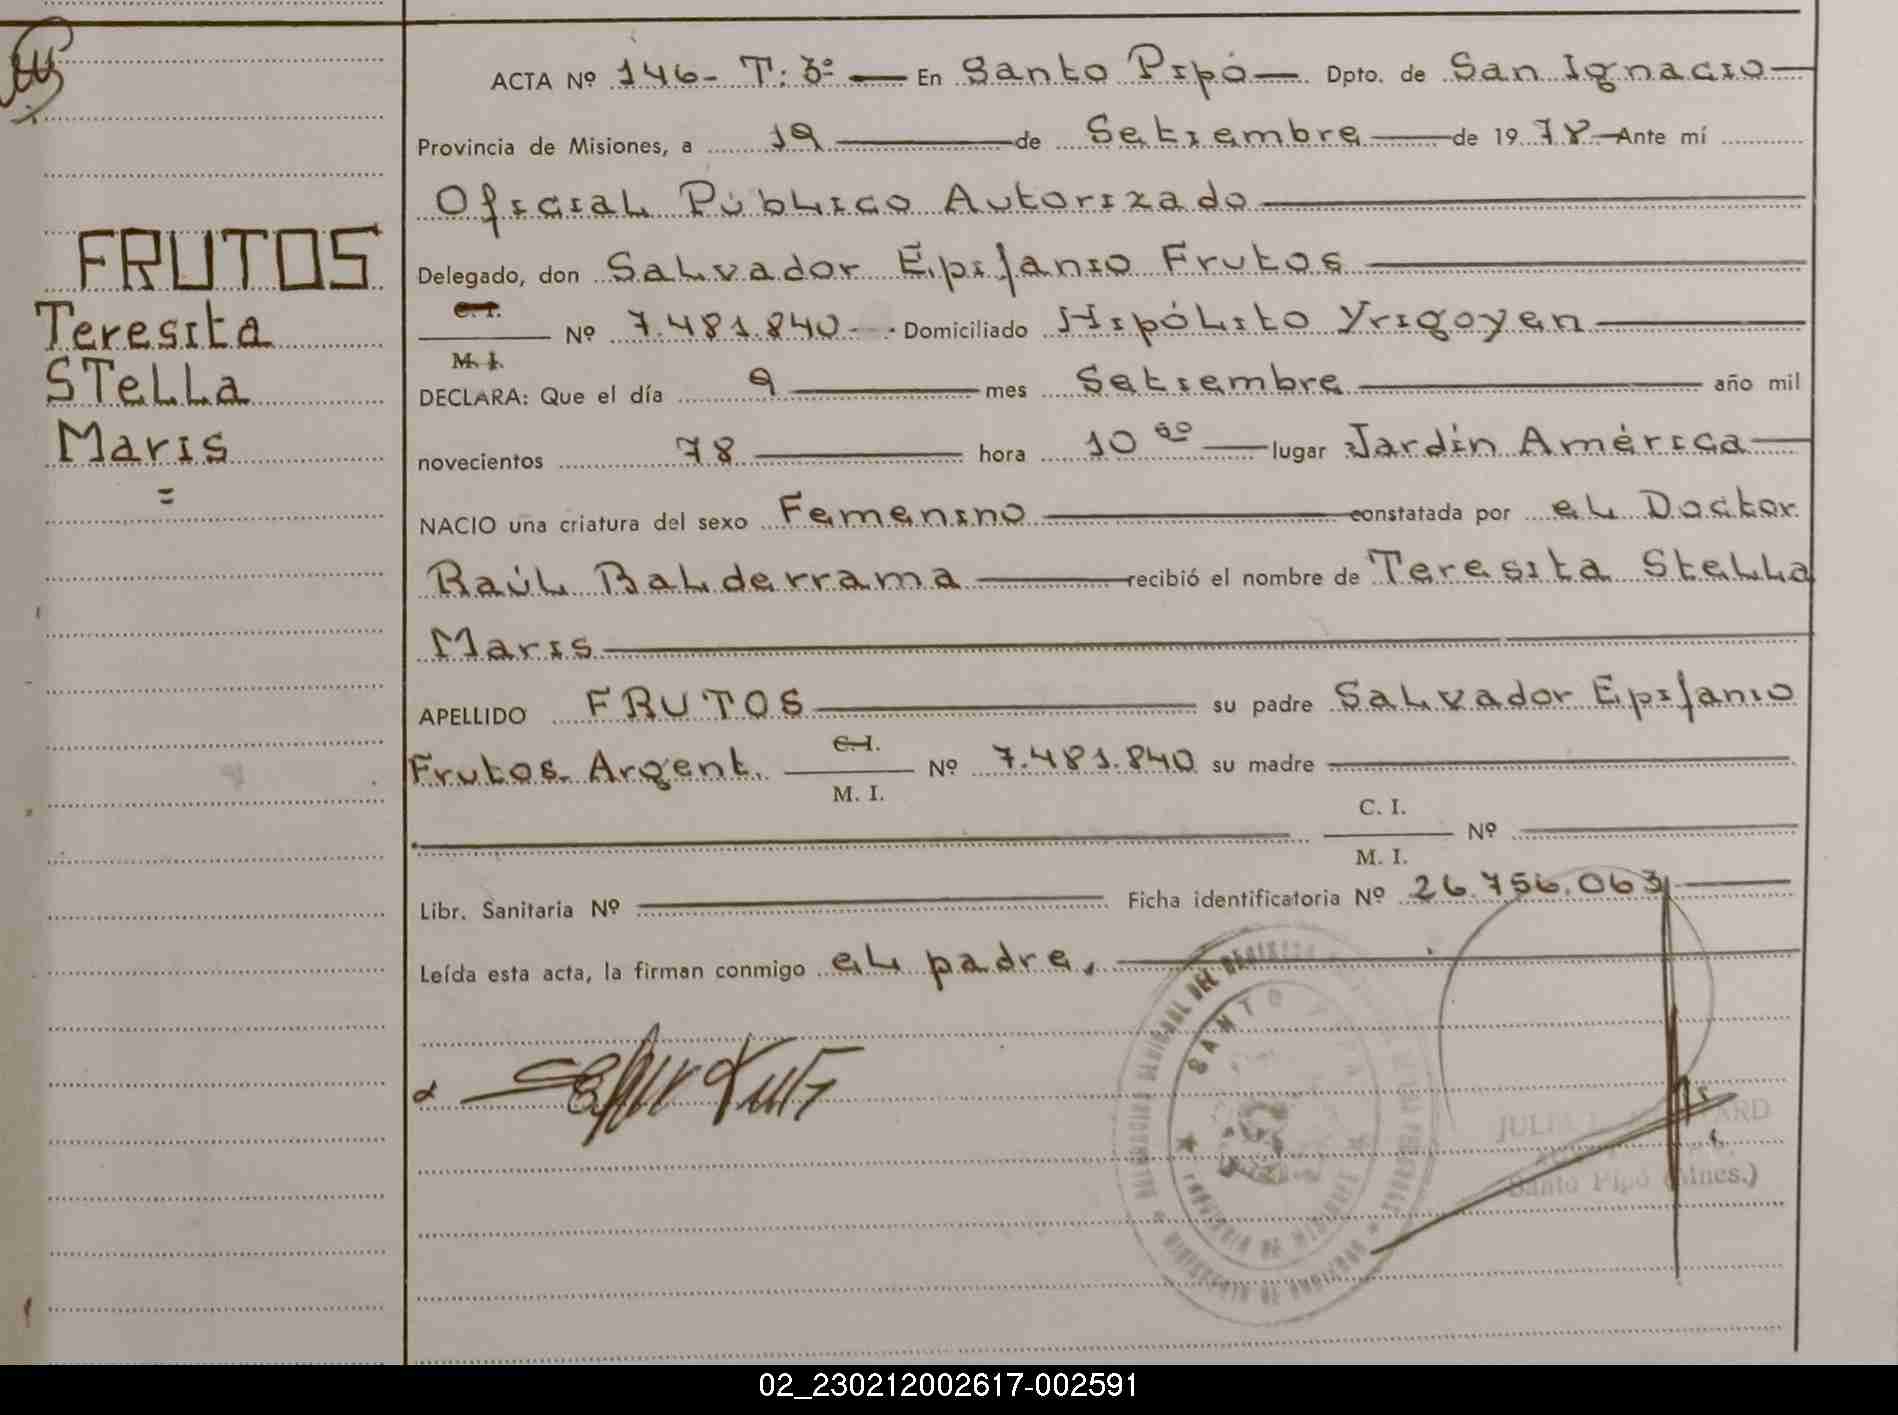 ACTA Nº 146- T: 3º — En Santo Pipó — Dpto. de San Ignacio —
Provincia de Misiones, a 19 — de Setiembre — de 1978 — Ante mí
Oficial Público Autorizado —
FRUTOS
Teresita
STella
Maris
=
Delegado, don Salvador Epifanio Frutos —
C. I.
M. I.
Nº 7.481.840 - Domiciliado Hipólito Yrigoyen —
DECLARA: Que el día 9 — mes Setiembre — año mil
novecientos 78 — hora 10 — lugar Jardín América —
NACIO una criatura del sexo Femenino — constatada por el Doctor
Raúl Balderrama — recibió el nombre de Teresita Stella
Maris —
APELLIDO FRUTOS — su padre Salvador Epifanio
Frutos. Argent. C. I. Nº 7.481.840 su madre —
M. I.
— C. I. Nº —
M. I.
Libr. Sanitaria Nº — Ficha identificatoria Nº 26.756.063 —
Leída esta acta, la firman conmigo el padre, —
SANTO PIPO
Santo Pipó (Mnes.)
02_230212002617-002591